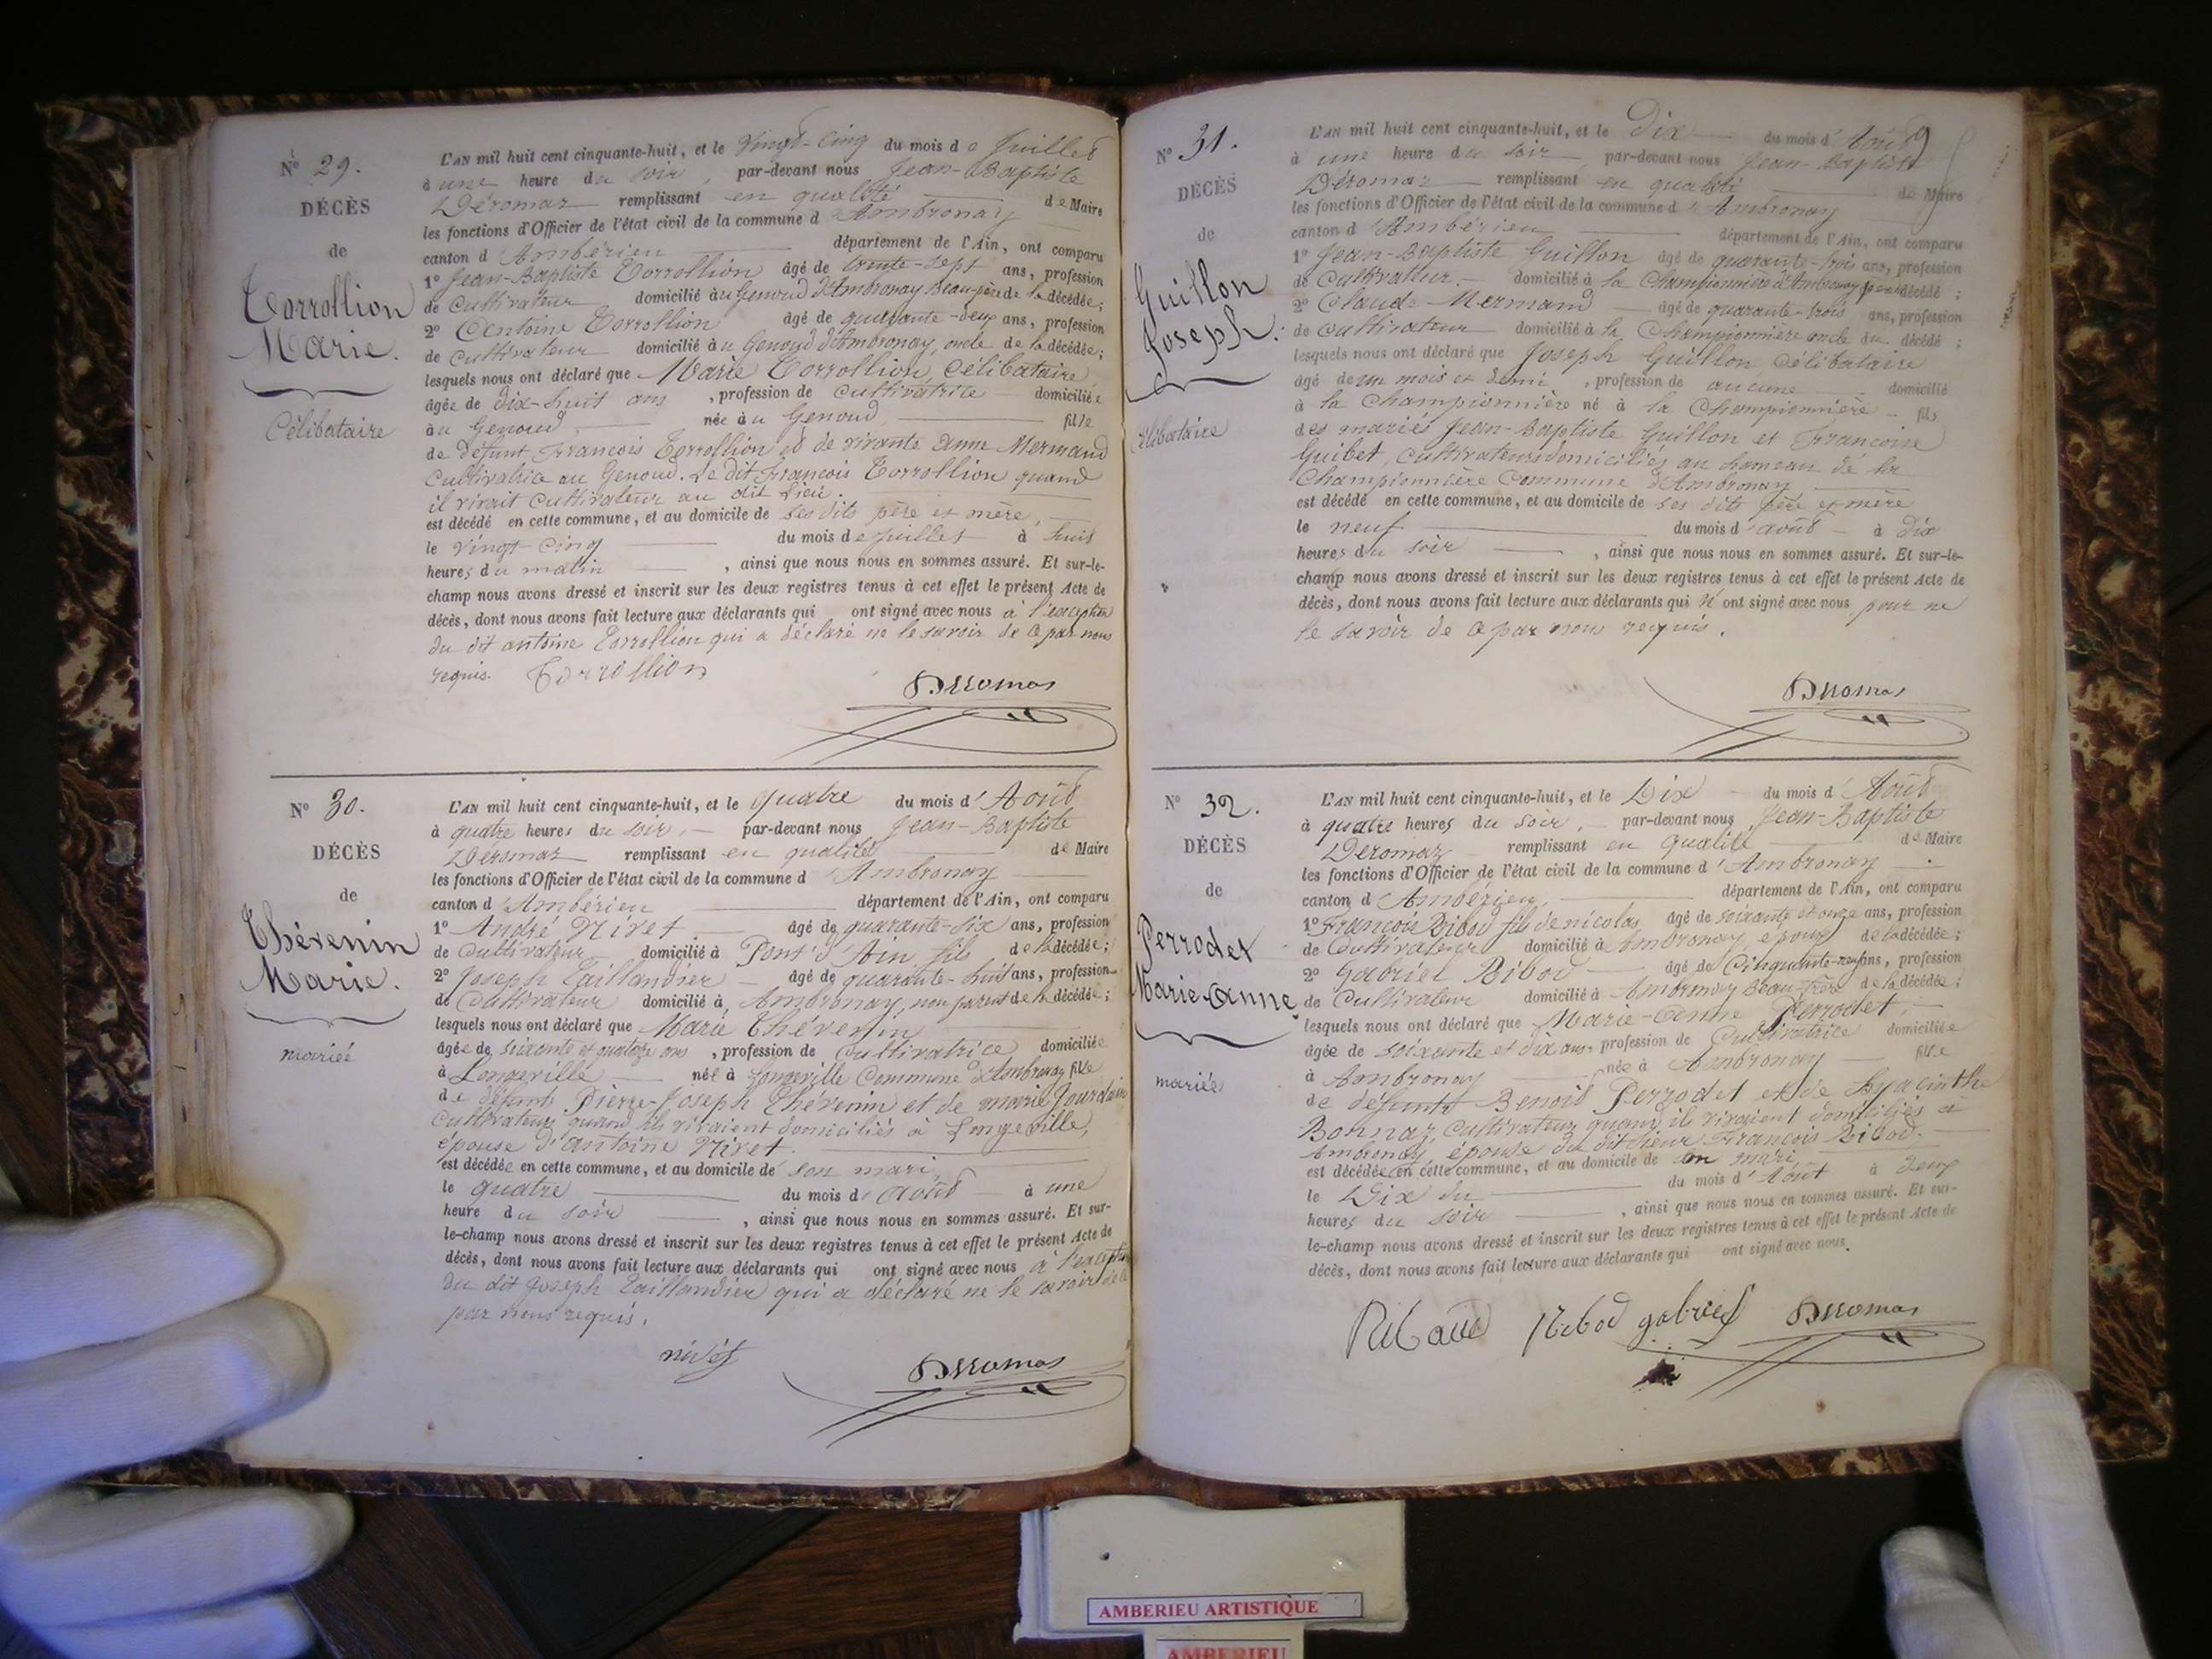 N° 29.
DÉCÈS
de
Corrollion
Marie.
Célibataire
L'AN mil huit cent cinquante-huit, et le Vingt-Cinq du mois de Juillet
à une heure du soir, par-devant nous Jean-Baptiste
Déromas remplissant en qualité de Maire
les fonctions d'Officier de l'état civil de la commune d'Ambronay
canton d'Ambérieu département de l'Ain, ont comparu
1° Jean-Baptiste Corrollion âgé de trente-sept ans, profession
de Cultivateur domicilié au Genoud d'Ambronay Beau-père de la décédée;
2° Antoine Corrollion âgé de quarante-deux ans, profession
de cultivateur domicilié au Genoud d'Ambronay, oncle de la décédée;
lesquels nous ont déclaré que Marie Corrollion, Célibataire
âgée de dix-huit ans, profession de cultivatrice domiciliée
au Genoud, née au Genoud, fille
de défunt François Corrollion et de vivante Anne Mermand
Cultivatrice au Genoud. Le dit François Corrollion quand
il vivait Cultivateur au dit Lieu.
est décédé en cette commune, et au domicile de ses dits père et mère,
le Vingt-Cinq du mois de Juillet à huit
heures du matin, ainsi que nous nous en sommes assuré. Et sur-le-
champ nous avons dressé et inscrit sur les deux registres tenus à cet effet le présent Acte de
décès, dont nous avons fait lecture aux déclarants qui ont signé avec nous à l'exception
du dit antoine Corrollion qui a déclaré ne le savoir de ce par nous
requis. Corrollion
Deromas
N° 30.
DÉCÈS
de
Thévenin
Marie.
mariée
L'AN mil huit cent cinquante-huit, et le Quatre du mois d'Août
à quatre heures du soir, par-devant nous Jean-Baptiste
Déromas remplissant en qualité de Maire
les fonctions d'Officier de l'état civil de la commune d'Ambronay
canton d'Ambérieu département de l'Ain, ont comparu
1° André Nivet âgé de quarante-six ans, profession
de Cultivateur domicilié à Pont d'Ain fils de la décédée;
2° Joseph Taillandier âgé de quarante-huit ans, profession
de Cultivateur domicilié à Ambronay, non parent de la décédée;
lesquels nous ont déclaré que Marie Thévenin
âgée de soixante et quatorze ans, profession de Cultivatrice domiciliée
à Longeville née à Longeville Commune d'Ambronay fille
de défunts Pierre-Joseph Thévenin et de marie Jourdain
Cultivateurs quand ils vivaient domiciliés à Longeville,
épouse d'antoine Nivet.
est décédée en cette commune, et au domicile de son mari,
le quatre du mois d'Août à une
heure du soir, ainsi que nous nous en sommes assuré. Et sur-
le-champ nous avons dressé et inscrit sur les deux registres tenus à cet effet le présent Acte de
décès, dont nous avons fait lecture aux déclarants qui ont signé avec nous à l'exception
du dit Joseph Taillandier qui a déclaré ne le savoir de ce
par nous requis.
nivet
Deromas
N° 31.
DÉCÈS
de
Guillon
Joseph.
célibataire
L'AN mil huit cent cinquante-huit, et le Dix du mois d'Août
à une heure du soir par-devant nous Jean-Baptiste
Déromas remplissant en qualité de Maire
les fonctions d'Officier de l'état civil de la commune d'Ambronay
canton d'Ambérieu département de l'Ain, ont comparu
1° Jean-Baptiste Guillon âgé de quarante-trois ans, profession
de Cultivateur. domicilié à la Championnière d'Ambronay père décédé;
2° Claude Mermand âgé de quarante-trois ans, profession
de cultivateur domicilié à la Championnière oncle du décédé;
lesquels nous ont déclaré que Joseph Guillon, Célibataire
âgé de un mois et demi, profession de aucune domicilié
à la Championnière né à la Championnière fils
des mariés Jean-Baptiste Guillon et Françoise
Guibet, Cultivateurs domiciliés au hameau de la
Championnière Commune d'Ambronay
est décédé en cette commune, et au domicile de ses dits père et mère
le neuf du mois d'août à dix
heures du soir, ainsi que nous nous en sommes assuré. Et sur-le-
champ nous avons dressé et inscrit sur les deux registres tenus à cet effet le présent Acte de
décès, dont nous avons fait lecture aux déclarants qui n'ont signé avec nous pour ne
le savoir de ce par nous requis.
Deromas
N° 32.
DÉCÈS
de
Perrodet
Marie-Anne.
mariée
L'AN mil huit cent cinquante-huit, et le Dix du mois d'Août
à quatre heures du soir, par-devant nous Jean-Baptiste
Deromas remplissant en qualité de Maire
les fonctions d'Officier de l'état civil de la commune d'Ambronay
canton d'Ambérieu, département de l'Ain, ont comparu
1° François Ribod fils de nicolas âgé de soixante et onze ans, profession
de Cultivateur domicilié à Ambronay, époux de la décédée;
2° Gabriel Ribod âgé de Cinquante-neuf ans, profession
de Cultivateur domicilié à Ambronay Beau-frère de la décédée;
lesquels nous ont déclaré que Marie-Anne Perrodet,
âgée de soixante et dix ans, profession de Cultivatrice domiciliée
à Ambronay née à Ambronay fille
de défunts Benoit Perrodet et de hyacinthe
Bonnaz, Cultivateurs quand ils vivaient domiciliés à
Ambronay, épouse du dit sieur François Ribod.
est décédée en cette commune, et au domicile de son mari,
le Dix du du mois d'Août à deux
heures du soir, ainsi que nous nous en sommes assuré. Et sur-
le-champ nous avons dressé et inscrit sur les deux registres tenus à cet effet le présent Acte de
décès, dont nous avons fait lecture aux déclarants qui ont signé avec nous.
Ribod gabriel Deromas
AMBERIEU ARTISTIQUE
AMBERIEU